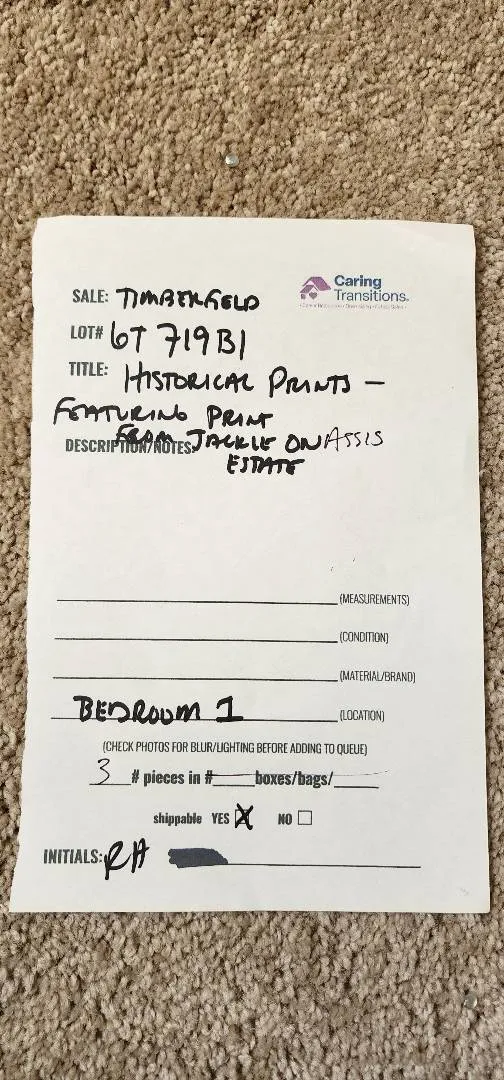 Caring
Transitions.
SALE: TIMBERFIELD
LOT# 6T 719B1
TITLE: HISTORICAL PRINTS -
FEATURING PRINT
FROM JACKIE ONASSIS
DESCRIPTION/NOTES:
ESTATE
(MEASUREMENTS)
(CONDITION)
(MATERIAL/BRAND)
BEDROOM 1 (LOCATION)
(CHECK PHOTOS FOR BLUR/LIGHTING BEFORE ADDING TO QUEUE)
3 # pieces in # boxes/bags/
shippable YES X NO
INITIALS: RH